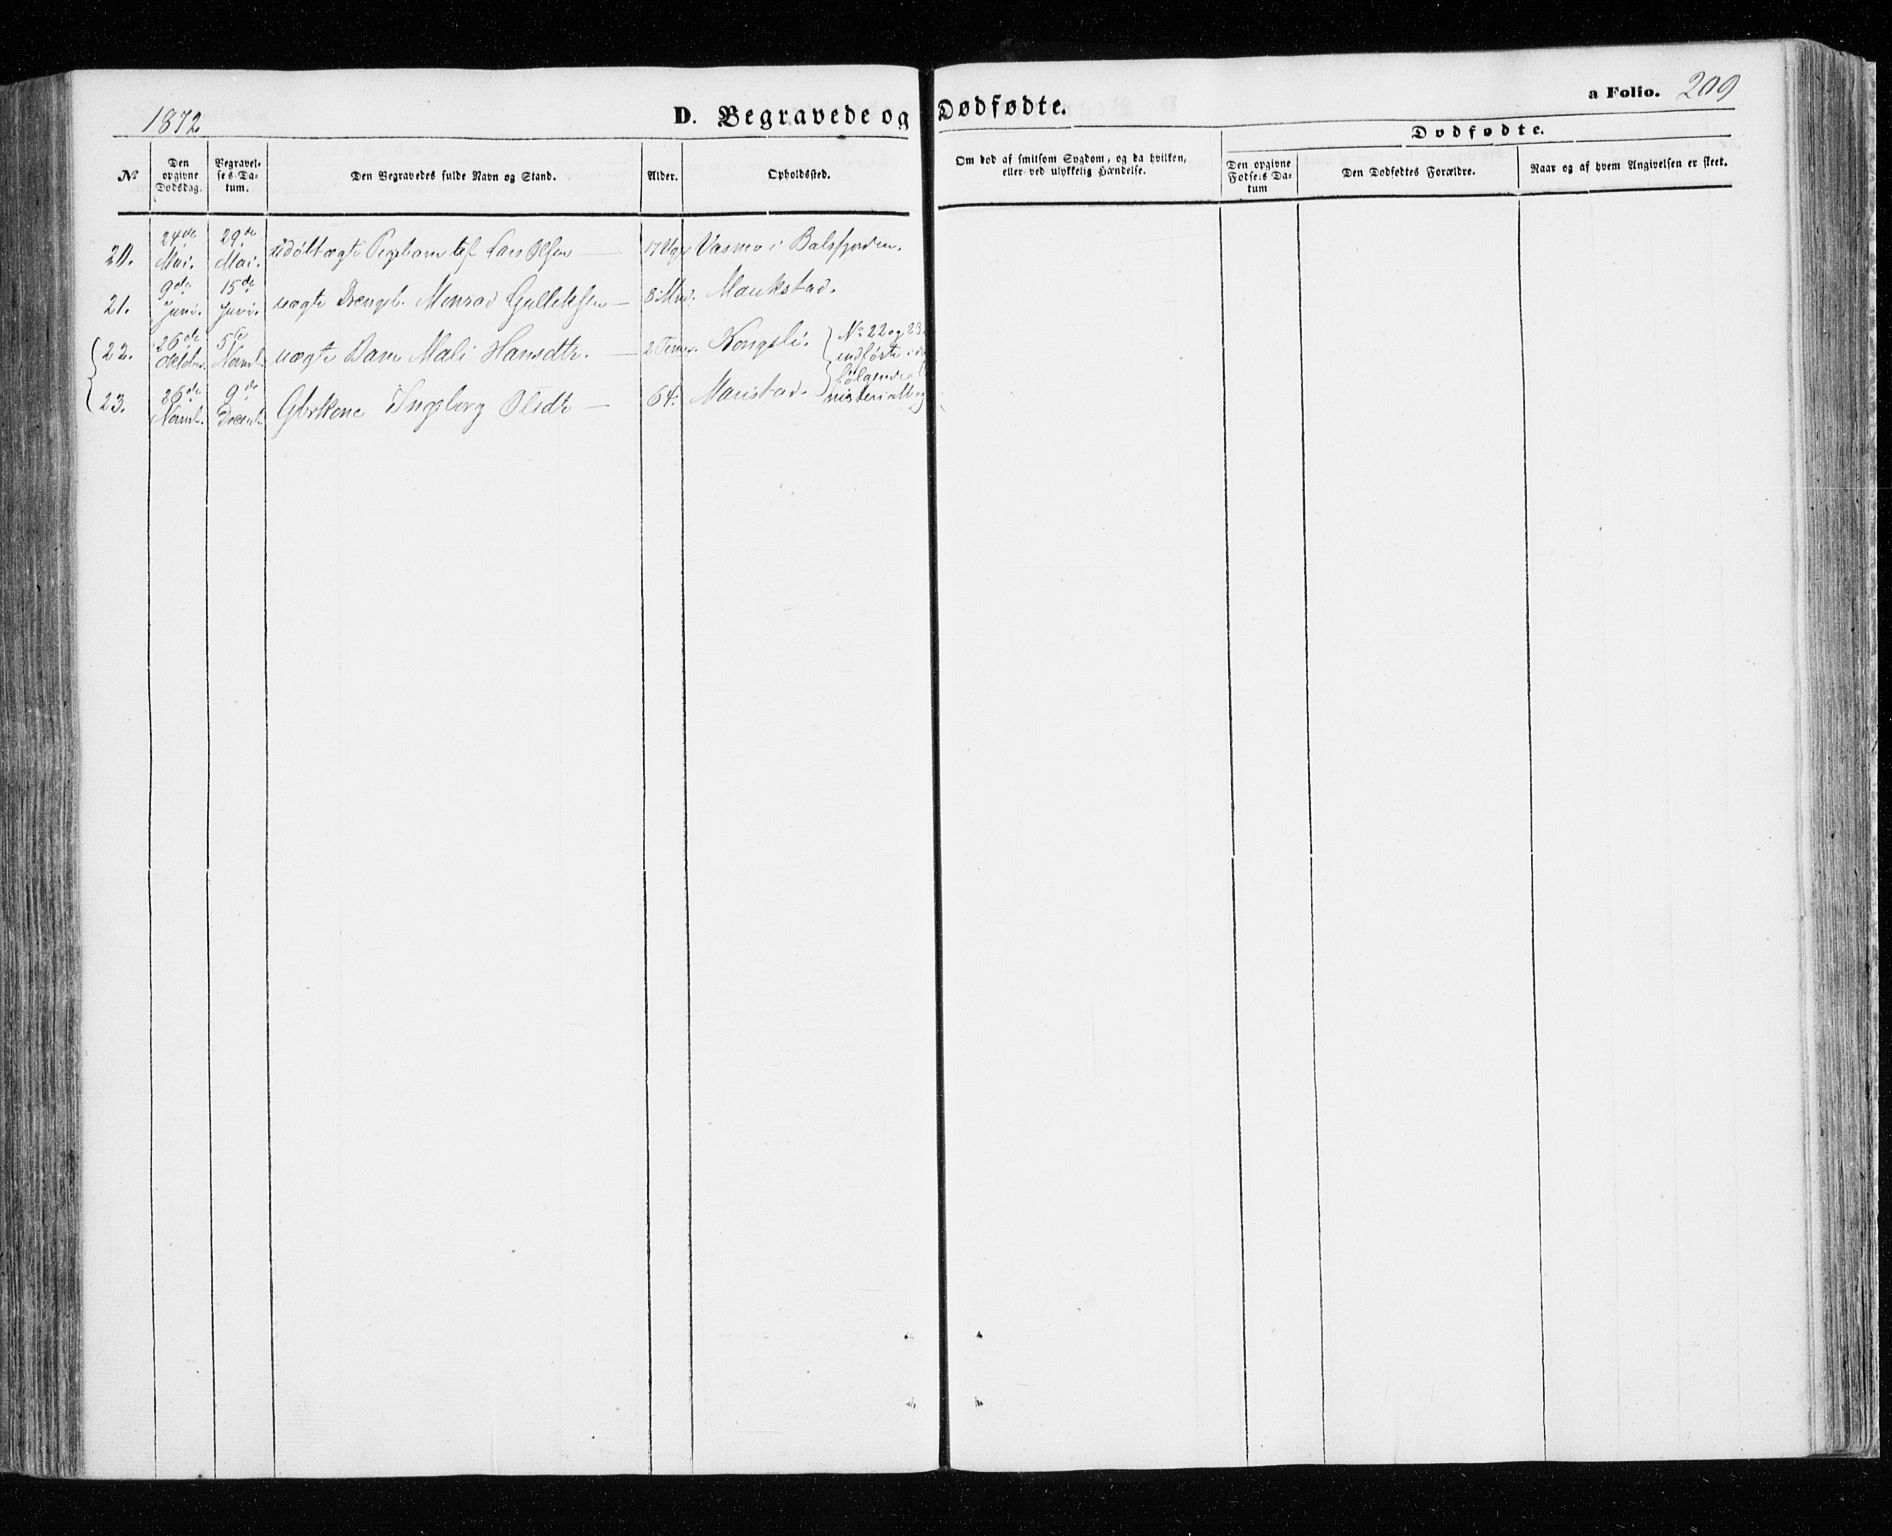 1872
D. Begravede og Dødfødte.
a Folio. 209
Dødfødte.
No
Den opgivne Dødsdag.
Begravelses-Datum.
Den Begravedes fulde Navn og Stand.
Alder.
Opholdssted.
Om død af smitsom Sygdom, og da hvilken, eller ved ulykkelig Hændelse.
Den opgivne Fødsels Datum
Den Dødfødtes Forældre.
Naar og af hvem Angivelsen er skeet.
20. 24de Mai. 29de Mai. Pigebarn Lars Olsen — Vasmo i Balsfjorden.
21. 9de Juni. 15de Juni. uægte Drengeb. Monrad — 8 Mnd. Maukstad.
22. 26de October 5te Novemb. uægte Barn Mali Hansdtr. — 2 Timer. Kongsli.
23. 26de Novemb. 9de Decemb. Gbrkone Ingeborg Olsdtr — 64. Maristad.
No 22 og 23
indførte i
følgende
nisterialbog